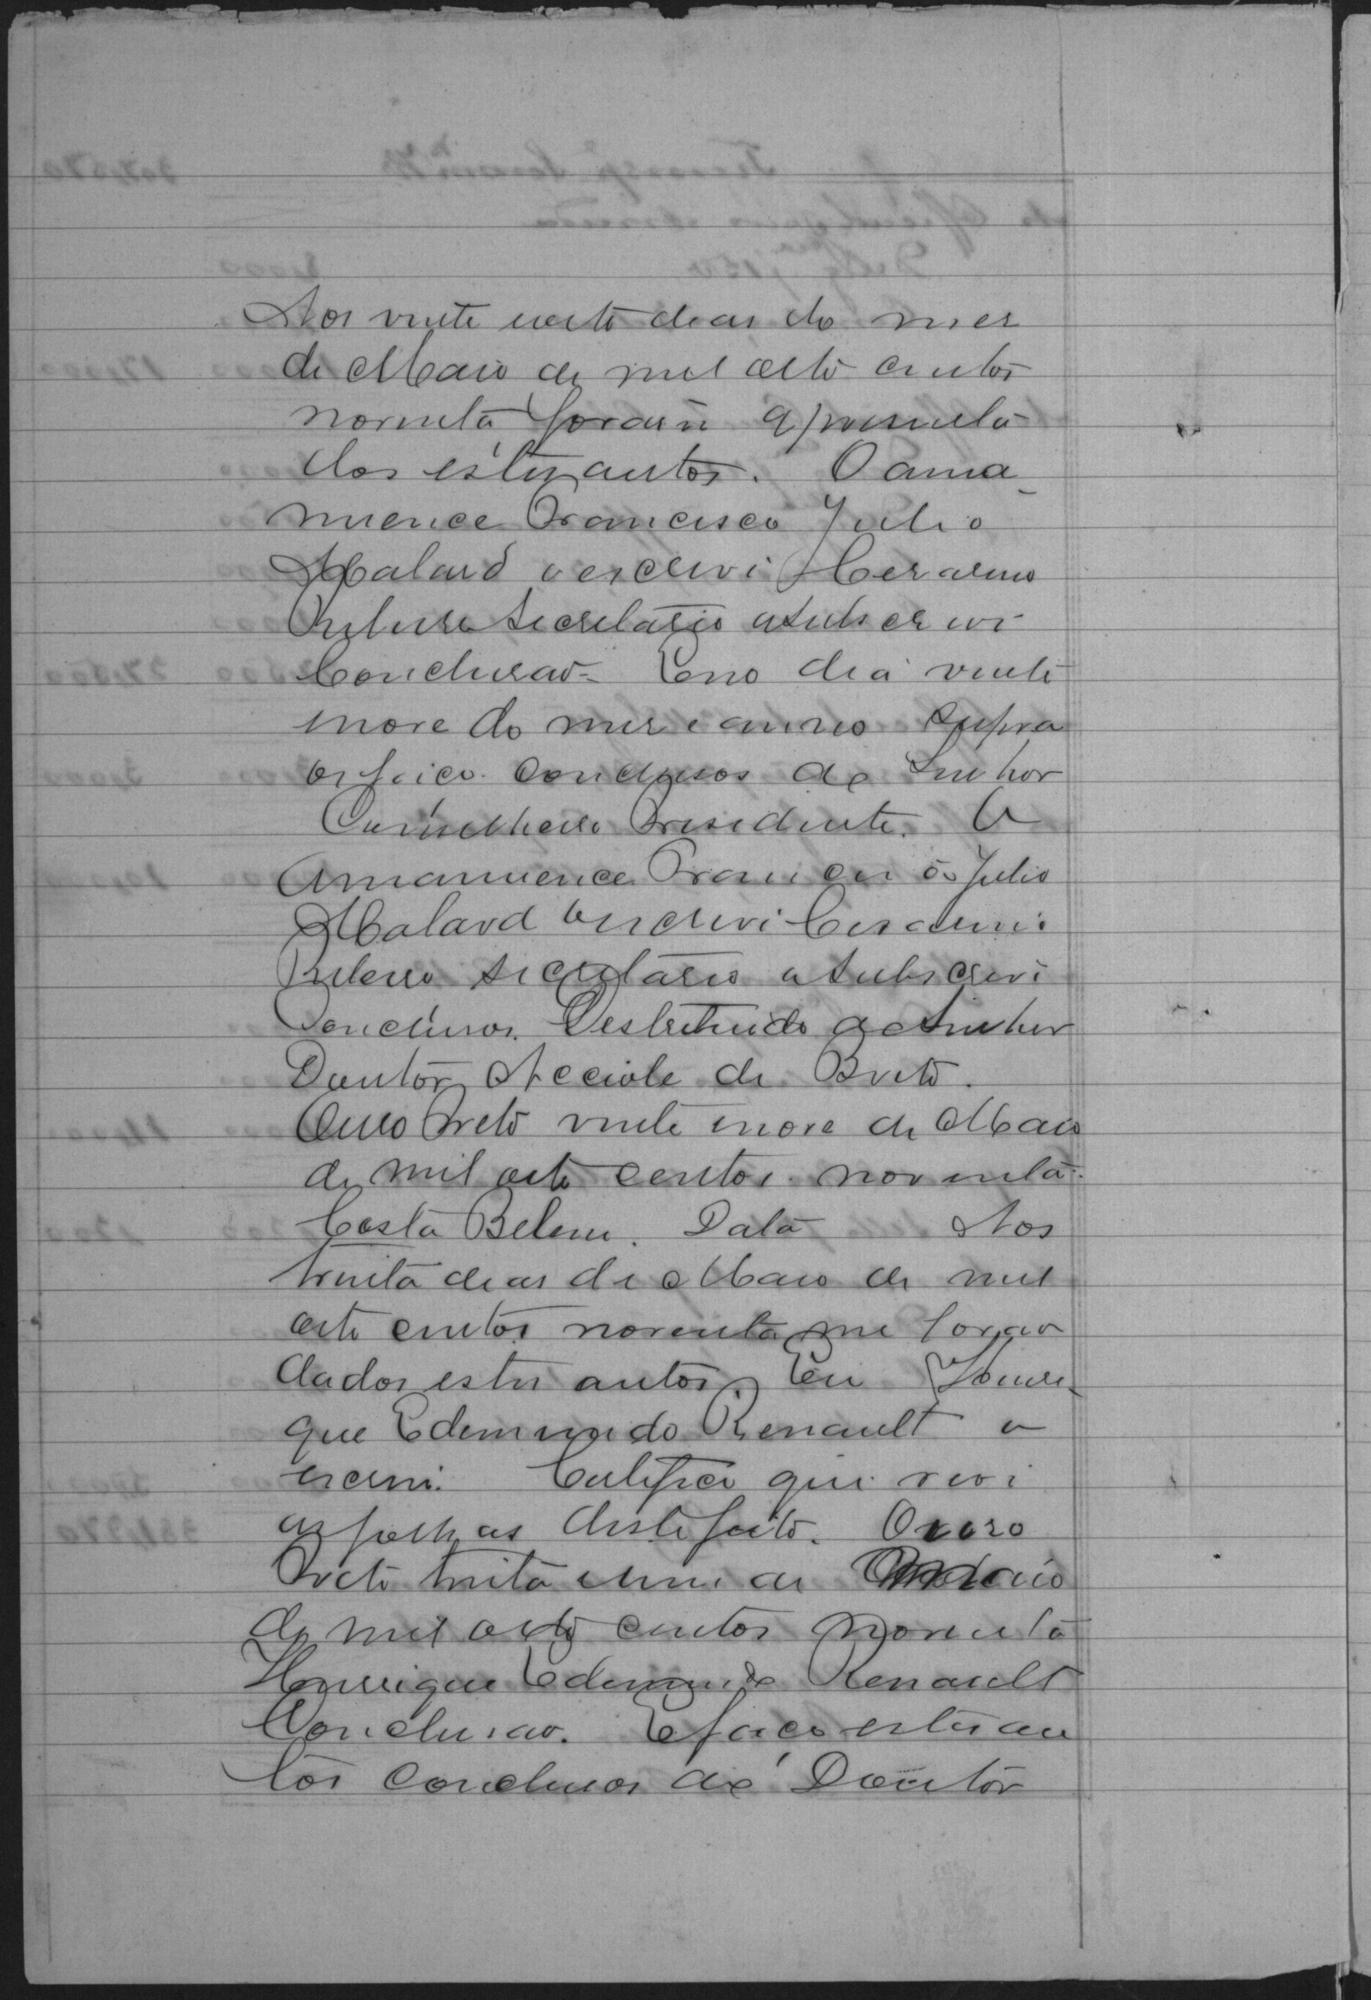 Aos vinte e oito dias do mes
de Maio de mil oito centos
noventa foram apresenta
dos estes autos. O ama-
nuence Francisco Julio
Malard o escrevi Cesareno
Ribeiro Secretario o subscrevi
Conclusão = E no dia vinte
e nove do mes e anno supra
os faico conclusos ao Senhor
Conselheiro Presidente. O
Amanuence Francisco Julio
Malard o escrevi Cesareno
Ribeiro secretario o subscrevi
Conclusos. Destribuido ao Senhor
Doutor Acciole de Brito.
Ouro Preto vinte e nove de Maio
de mil oito centos noventa.
Costa Belem. Data Aos
trinta dias de Maio de mil
oito centos noventa me forão
dados estes autos. Eu Henri-
que Edemundo Renault o
escrevi. Certifico que revi
as folhas deste feito. Ouro
Preto trinta e um de Maio
de mil oito centos noventa
Henrique Edemundo Renault
Conclusão. E faco estes au
tos conclusos ao Doutor